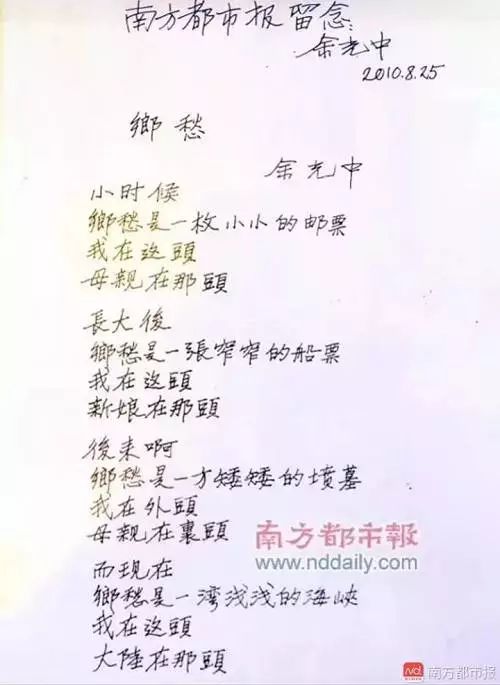 南方都市报留念:
余光中
2010.8.25
鄉愁
余光中
小时候
鄉愁是一枚小小的邮票
我在这頭
母親在那頭
長大後
鄉愁是一張窄窄的船票
我在这頭
新娘在那頭
後来啊
鄉愁是一方矮矮的墳墓
我在外頭
母親在裏頭
南方都市報
www.nddaily.com
而现在
鄉愁是一湾浅浅的海峽
我在这頭
大陸在那頭
南方都市报